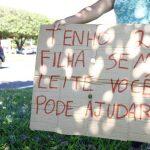 TENHO 2
FILHA SEM
LEITE VOCÊ
PODE AJUDAR